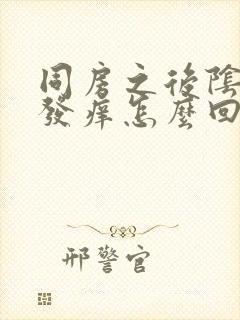 同房之後陰
發癢怎麼回
邢警官